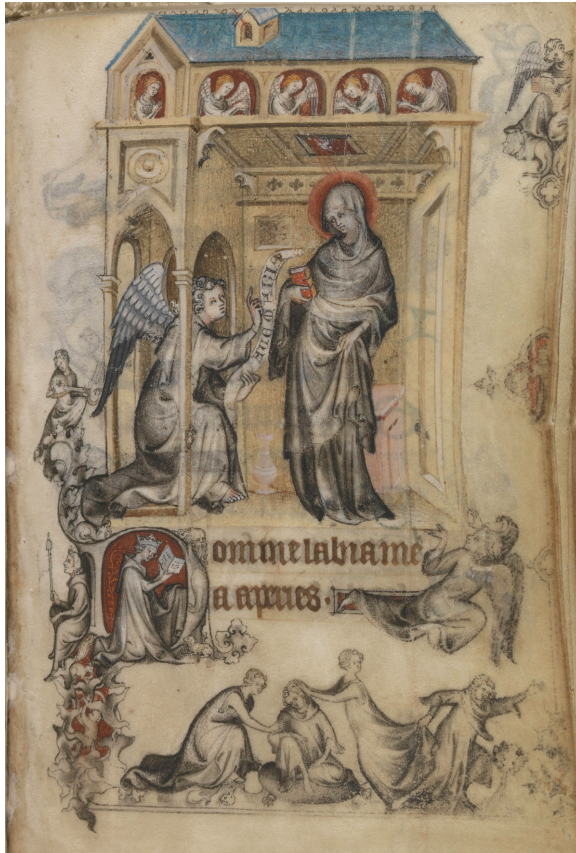 AVE MARIA
Domine labia me
a aperies.